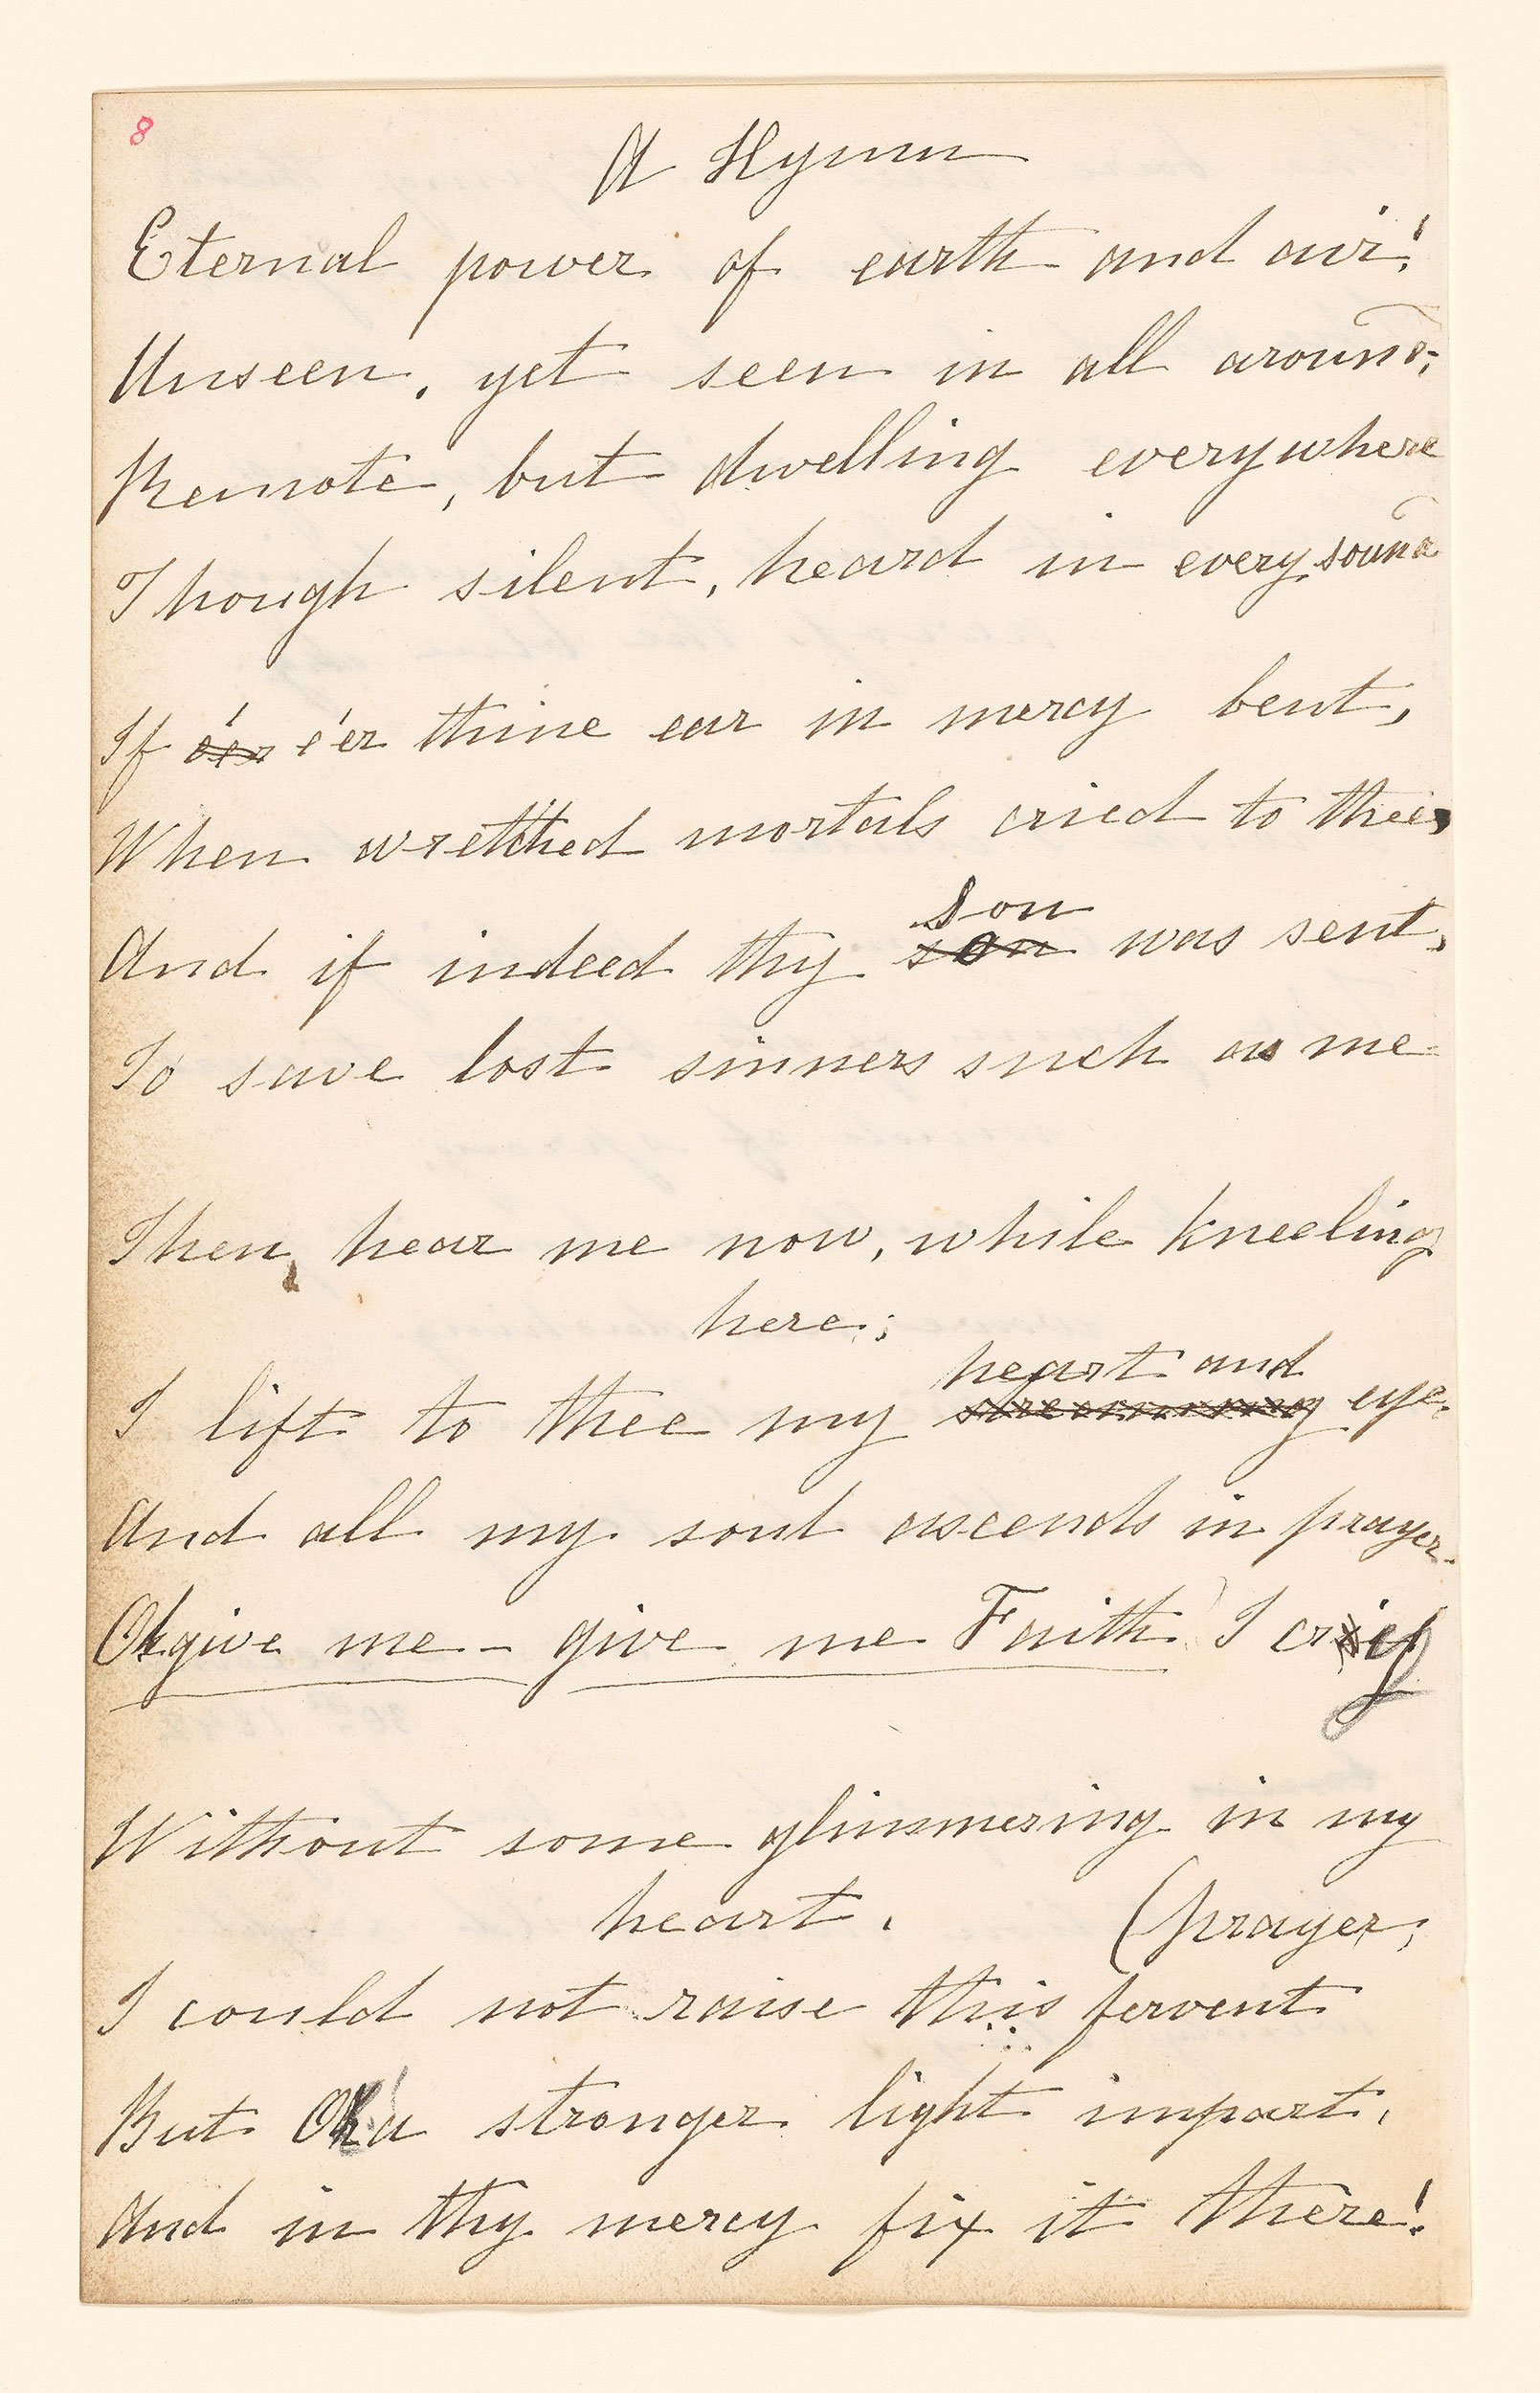 8
A Hymn
Eternal power of earth and air!
Unseen, yet seen in all around;
Remote, but dwelling everywhere
Though silent, heard in every sound
If o'er e'er thine ear in mercy bent,
When wretched mortals cried to thee,
Son
And if indeed thy son was sent,
To save lost sinners such as me
Then, hear me now, while kneeling
here;
heart and
I lift to thee my streaming eye,
And all my soul ascends in prayer.
Oh give me - give me Faith I cry
Without some glimmering in my
heart, (prayer;
I could not raise this fervent
But Oh! a stronger light impart,
And in thy mercy fix it there!